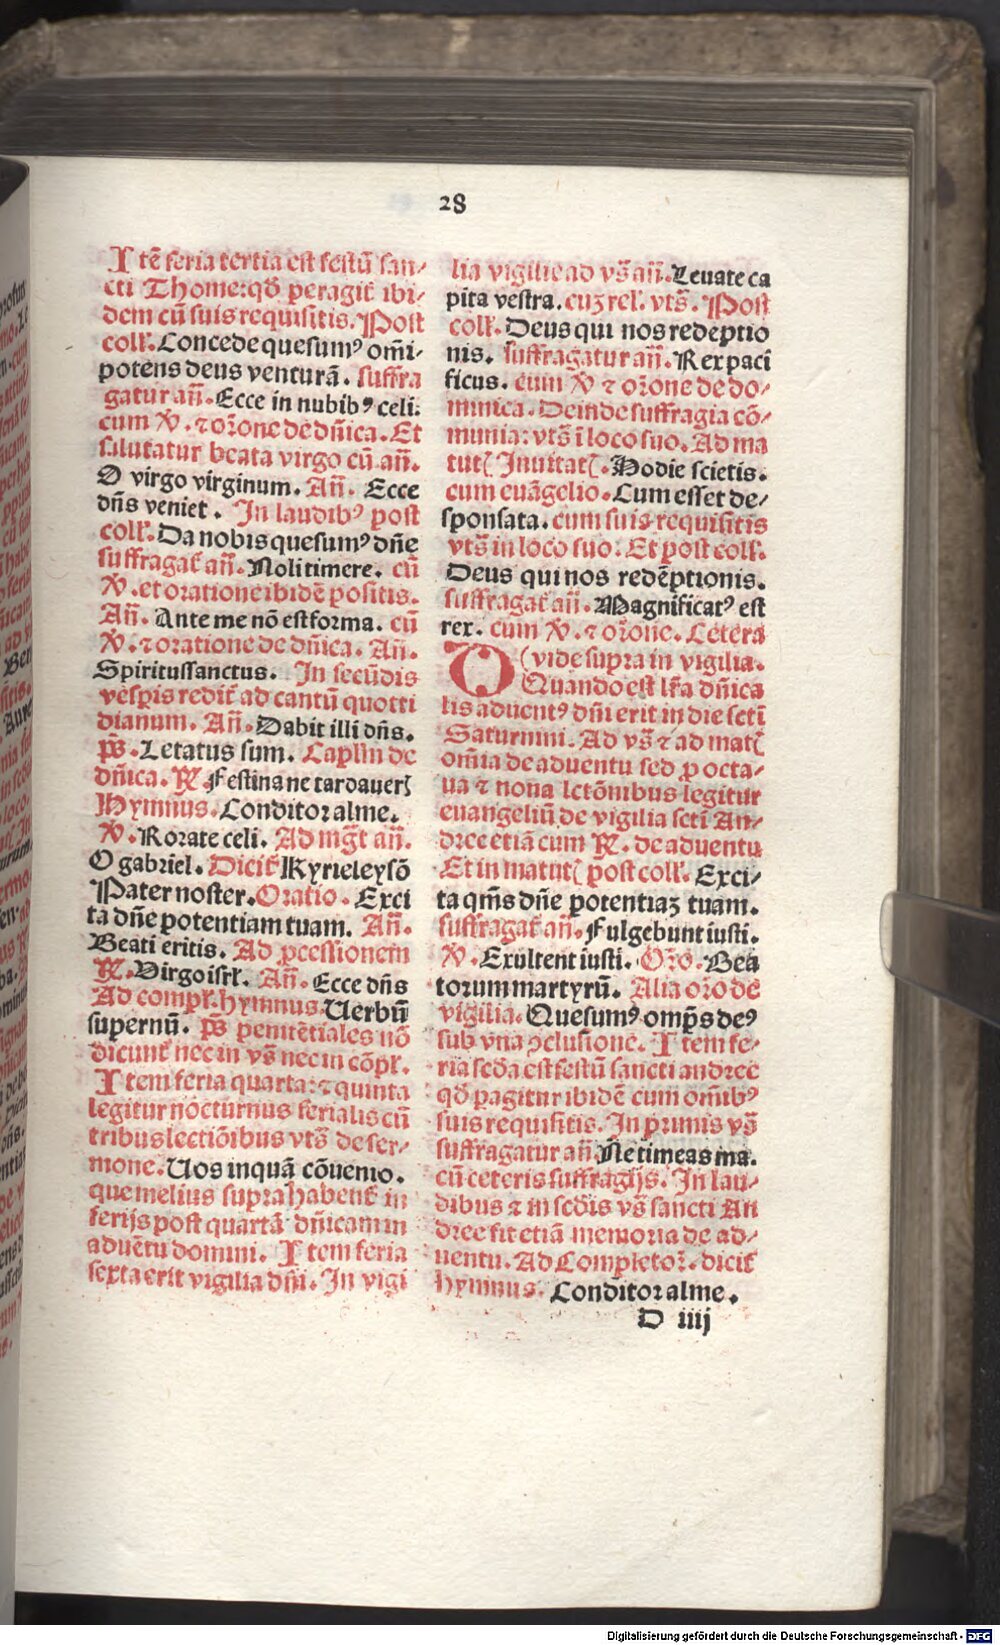 28
Itẽ feria tertia est festũ san⸗
cti Thome: qđ peragit̃ ibi⸗
dem cũ suis requisitis. Post
coll̃. Concede quesumꝰ om̃i⸗
potens deus venturã. suffra
gatur añ. Ecce in nubibꝰ celi.
cum ℣. ⁊ or̃one de dñica. Et
salutatur beata virgo cũ añ.
O virgo virginum. Añ. Ecce
dñs veniet. In laudibꝰ post
coll̃. Da nobis quesumꝰ dñe
suffragat̃ añ. Noli timere. cũ
℣. et oratione ibidẽ positis.
Añ. Ante me nõ est forma. cũ
℣. ⁊ oratione de dñica. Añ.
Spiritussanctus. In secũdis
vesꝑis redit̃ ad cantũ quotti
dianum. Añ. Dabit illi dñs.
p̃s. Letatus sum. Caplm̃ de
dñica. ℟. Festina ne tardaueris
Hymnus. Conditor alme.
℣. Rorate celi. Ad mg̃t añ.
O gabriel. Dicit̃ Kyrieleysõ
Pater noster. Oratio. Exci
ta dñe potentiam tuam. Añ.
Beati eritis. Ad ꝓcessionem
℟. Virgo isrl̃. Añ. Ecce dñs
Ad compl̃. hymnus. Uerbũ
supernũ. p̃s penitẽtiales nõ
dicunt̃ nec in vs̃ nec in cõpl̃.
Item feria quarta: ⁊ quinta
legitur nocturnus ferialis cũ
tribus lectiõibus vts̃ de ser⸗
mone. Uos inquã cõuenio.
que melius supra habent̃ in
ferijs post quartã dñicam in
aduẽtu domini. Item feria
sexta erit vigilia dñi. In vigi
lia vigilie ad vs̃ añ. Leuate ca
pita vestra. cuz rel̃. vts̃. Post
coll̃. Deus qui nos redeptio
nis. suffragatur añ. Rex paci
ficus. cum ℣ ⁊ or̃one de do⸗
minica. Deinde suffragia cõ⸗
munia: vts̃ ĩ loco suo. Ad ma
tut̃ Inuitat̃. Hodie scietis.
cum euãgelio. Cum esset de⸗
sponsata. cum suis requisitis
vts̃ in loco suo. Et post coll̃.
Deus qui nos redẽptionis.
suffragat̃ añ. Magnificatꝰ est
rex. cum ℣. ⁊ or̃one. Cetera
(vide supra in vigilia.
O Quando est lr̃a dñica
lis aduentꝰ dñi erit in die scti
Saturnini. Ad vs̃ ⁊ ad mat̃
om̃ia de aduentu sed ꝓ octa⸗
ua ⁊ nona lctõnibus legitur
euangeliũ de vigilia scti An⸗
dree etiã cum ℟. de aduentu
Et in matut̃ post coll̃. Exci⸗
ta qm̃s dñe potentiaz tuam.
suffragat̃ añ. Fulgebunt iusti.
℣. Exultent iusti. Or̃o. Bea
torum martyrũ. Alia or̃o de
vigilia. Quesumꝰ omp̃s deꝰ
sub vna ꝯclusione. Item fe⸗
ria scđa est festũ sancti andree
qđ ꝑagitur ibidẽ cum om̃ibꝰ
suis requisitis. In primis vs̃
suffragatur añ. Ne timeas ma.
cũ ceteris suffragijs. In lau⸗
dibus ⁊ in scđis vs̃ sancti An
dree fit etiã memoria de ad⸗
uentu. Ad Completor̃. dicit̃
hymnus. Conditor alme.
D iiij
Digitalisierung gefördert durch die Deutsche Forschungsgemeinschaft - DFG